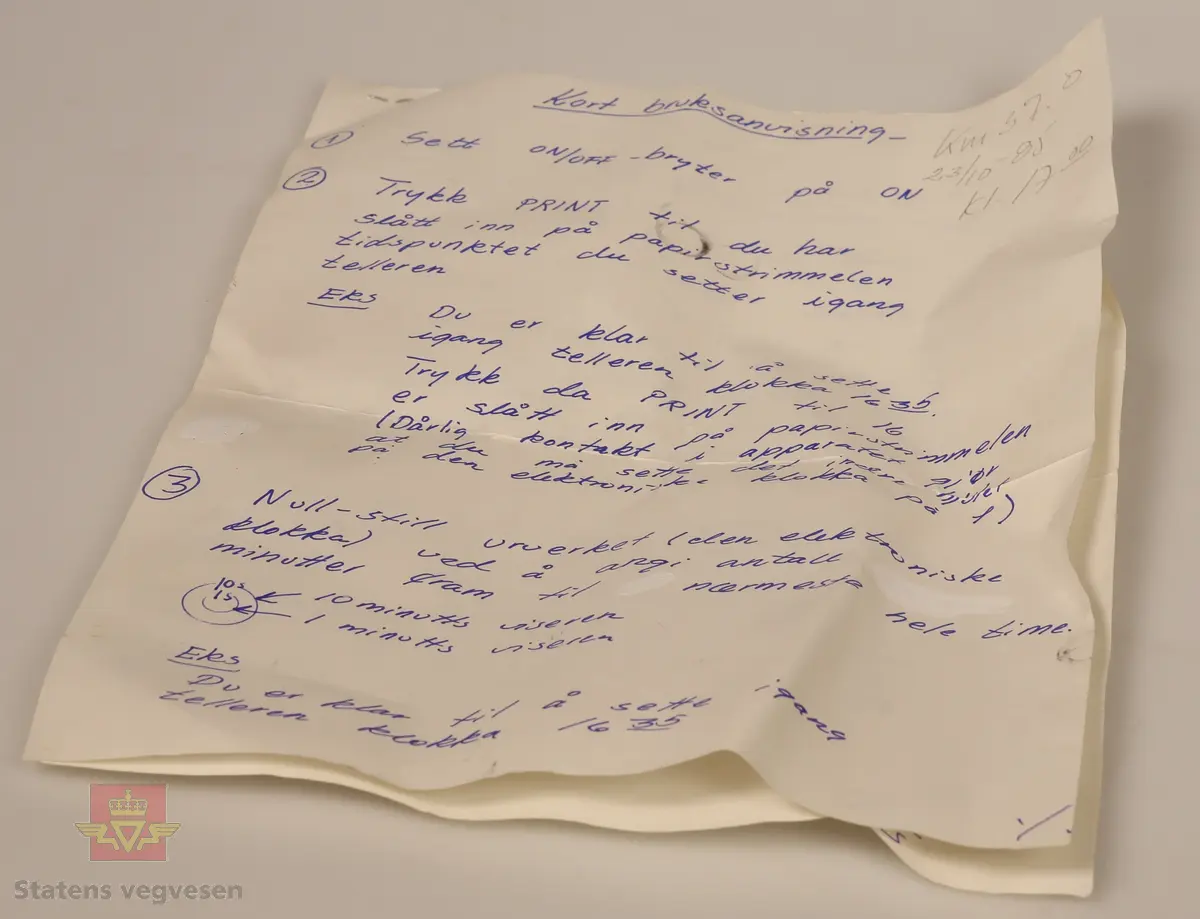 Kort bruksanvisning
Km 37.0
23/10-85
kl. 17 00
① Sett ON/OFF-bryter på ON
② Trykk PRINT til du har
slått inn på papirstrimmelen
tidspunktet du setter igang
telleren
Eks Du er klar til å sette
igang telleren klokka 16 35.
Trykk da PRINT til 16
er slått inn på papirstrimmelen
(Dårlig kontakt i apparatet gjør
at du må sette klokka på
på den elektroni
③ Null-still urverket (den elektroniske
klokka) ved å angi antall
minutter fram til nærmeste hele time.
10s ← 10 minutts viseren
1s ← 1 minutts viseren
Eks
Du er klar til å sette igang
telleren klokka 16 35
./.
Statens vegvesen